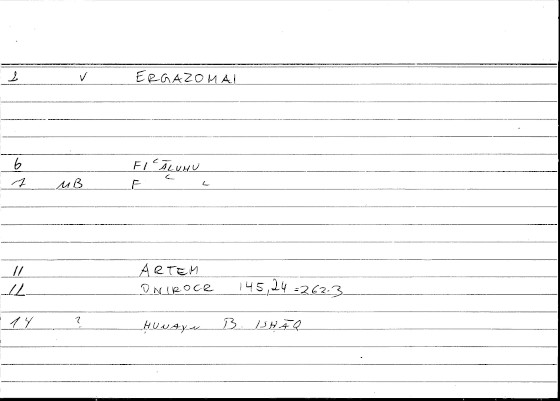 1 V ERGAZOMAI
6 FIʿĀLUHU
7 MB F ʿ L
11 ARTEM
12 ONIROCR 145,24 =262.3
14 ? HUNAYN B. ISHĀQ